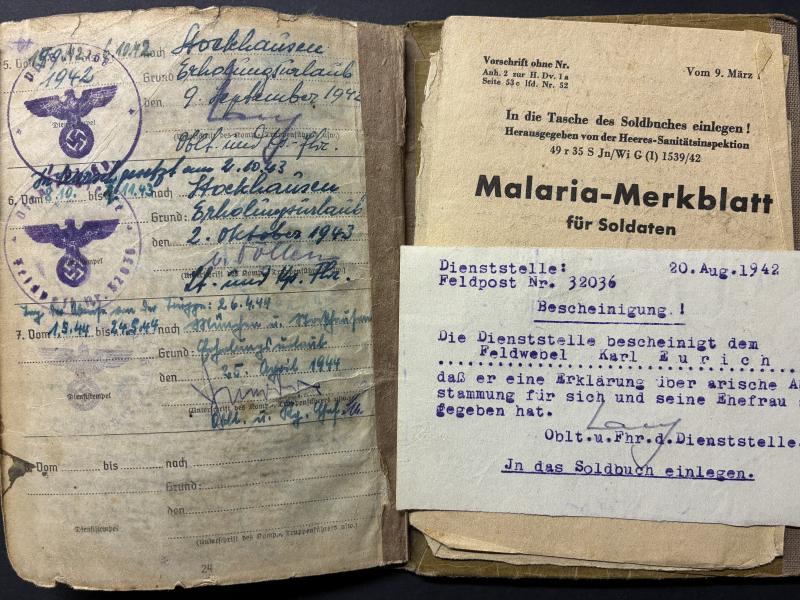 5. Vom 15.9.42 bis 1.10.42 nach Stockhausen
1942
Grund: Erholungsurlaub
den 9. September 1942
Dienststempel
(Unterschrift des Komp.-, Truppenführers usw.)
Oblt. und Kp. Fhr.
In Marsch gesetzt am 2.10.43
6. Vom 8.10. bis 2.11.43 nach Stockhausen
Grund: Erholungsurlaub
den 2. Oktober 1943
Dienststempel
Lt. und Kp. Fhr.
Feldpost Nr. 32036
Tag der Abreise von der Truppe: 26.4.44
7. Vom 1.5.44 bis 24.5.44 nach München u. Stockhausen
Grund: Erholungsurlaub
den 25. April 1944
Dienststempel
(Unterschrift des Komp.-, Truppenführers usw.)
Oblt. u.
8. Vom bis nach
Grund:
den
Dienststempel
(Unterschrift des Komp.-, Truppenführers usw.)
24
Vorschrift ohne Nr.
Anh. 2 zur H. Dv. 1a
Seite 53c lfd. Nr. 52
Vom 9. März
In die Tasche des Soldbuches einlegen!
Herausgegeben von der Heeres-Sanitätsinspektion
49 r 35 S Jn/Wi G (I) 1539/42
Malaria-Merkblatt
für Soldaten
Dienststelle: 20.Aug.1942
Feldpost Nr. 32036
Bescheinigung!
Die Dienststelle bescheinigt dem
Feldwebel Karl Eurich
daß er eine Erklärung über arische Ab
stammung für sich und seine Ehefrau
gegeben hat.
Oblt.u.Fhr.d.Dienststelle.
Jn das Soldbuch einlegen.